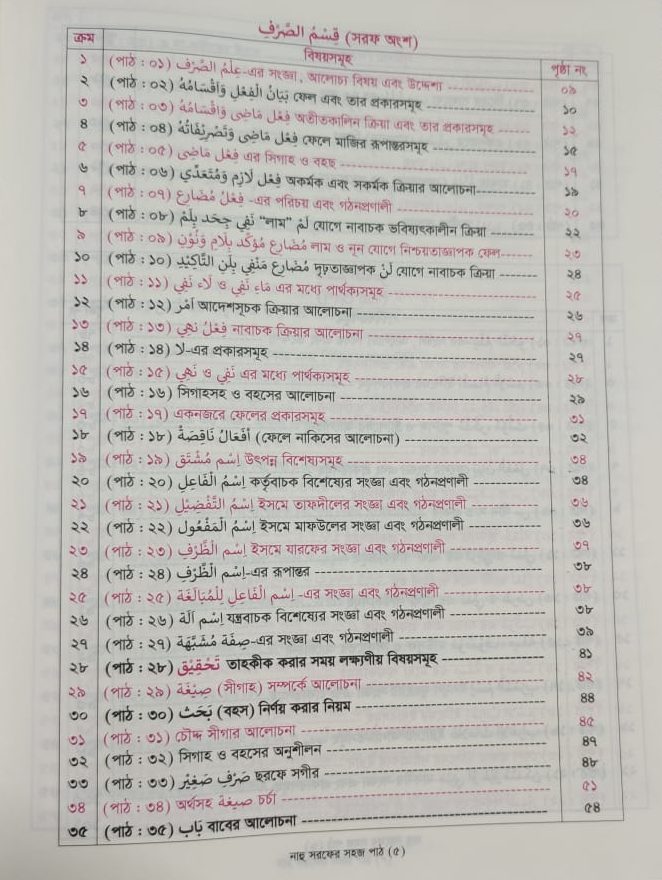 قِسْمُ الصَّرْفِ (সরফ অংশ)
ক্রম বিষয়সমূহ পৃষ্ঠা নং
১ (পাঠ : ০১) عِلْمُ الصَّرْفِ-এর সংজ্ঞা, আলোচ্য বিষয় এবং উদ্দেশ্য ০৯
২ (পাঠ : ০২) بَيَانُ الْفِعْلِ وَأَقْسَامُهُ ফেল এবং তার প্রকারসমূহ ১০
৩ (পাঠ : ০৩) فِعْلُ مَاضِي وَأَقْسَامُهُ অতীতকালিন ক্রিয়া এবং তার প্রকারসমূহ ১২
৪ (পাঠ : ০৪) فِعْلُ مَاضِي وَتَصْرِيْفَاتُهُ ফেলে মাজির রূপান্তরসমূহ ১৫
৫ (পাঠ : ০৫) فِعْلُ مَاضِي এর সিগাহ ও বহছ ১৭
৬ (পাঠ : ০৬) فِعْل لَازِم وَمُتَعَدِّي অকর্মক এবং সকর্মক ক্রিয়ার আলোচনা ১৯
৭ (পাঠ : ০৭) فِعْلُ مُضَارِع -এর পরিচয় এবং গঠনপ্রণালী ২০
৮ (পাঠ : ০৮) نَفِي جَحَد بِلَمْ "লাম" لَمْ যোগে নাবাচক ভবিষ্যৎকালীন ক্রিয়া ২২
৯ (পাঠ : ০৯) مُضَارِع مُؤَكَّد بِلَامِ وَنُوْنِ লাম ও নূন যোগে নিশ্চয়তাজ্ঞাপক ফেল ২৩
১০ (পাঠ : ১০) مُضَارِع مَنْفِي بِلَنِ التَّاكِيْدِ দৃঢ়তাজ্ঞাপক لَنْ যোগে নাবাচক ক্রিয়া ২৪
১১ (পাঠ : ১১) لَاء نَفِي ও مَاء نَفِي এর মধ্যে পার্থক্যসমূহ ২৫
১২ (পাঠ : ১২) أَمْر আদেশসূচক ক্রিয়ার আলোচনা ২৬
১৩ (পাঠ : ১৩) فِعْلُ نَهِي নাবাচক ক্রিয়ার আলোচনা ২৭
১৪ (পাঠ : ১৪) لَا-এর প্রকারসমূহ ২৭
১৫ (পাঠ : ১৫) نَفِي ও نَهِي এর মধ্যে পার্থক্যসমূহ ২৮
১৬ (পাঠ : ১৬) সিগাহসহ ও বহসের আলোচনা ২৯
১৭ (পাঠ : ১৭) একনজরে ফেলের প্রকারসমূহ ৩১
১৮ (পাঠ : ১৮) أَفْعَالُ نَاقِصَة (ফেলে নাকিসের আলোচনা) ৩২
১৯ (পাঠ : ১৯) اِسْم مُشْتَق উৎপন্ন বিশেষ্যসমূহ ৩৪
২০ (পাঠ : ২০) اِسْم الْفَاعِل কর্তৃবাচক বিশেষ্যের সংজ্ঞা এবং গঠনপ্রণালী ৩৪
২১ (পাঠ : ২১) اِسْم التَّفْضِيْل ইসমে তাফদীলের সংজ্ঞা এবং গঠনপ্রণালী ৩৬
২২ (পাঠ : ২২) اِسْم الْمَفْعُوْل ইসমে মাফউলের সংজ্ঞা এবং গঠনপ্রণালী ৩৬
২৩ (পাঠ : ২৩) اِسْم الظَّرْف ইসমে যারফের সংজ্ঞা এবং গঠনপ্রণালী ৩৭
২৪ (পাঠ : ২৪) اِسْم الظَّرْف-এর রূপান্তর ৩৮
২৫ (পাঠ : ২৫) اِسْم الْفَاعِل لِلْمُبَالَغَة -এর সংজ্ঞা এবং গঠনপ্রণালী ৩৮
২৬ (পাঠ : ২৬) اِسْم آلَة যন্ত্রবাচক বিশেষ্যের সংজ্ঞা এবং গঠনপ্রণালী ৩৮
২৭ (পাঠ : ২৭) صِفَة مُشَبَّهَة-এর সংজ্ঞা এবং গঠনপ্রণালী ৩৯
২৮ (পাঠ : ২৮) تَحْقِيْق তাহকীক করার সময় লক্ষণীয় বিষয়সমূহ ৪১
২৯ (পাঠ : ২৯) صِيْغَة (সীগাহ) সম্পর্কে আলোচনা ৪২
৩০ (পাঠ : ৩০) بَحَث (বহস) নির্ণয় করার নিয়ম ৪৪
৩১ (পাঠ : ৩১) চৌদ্দ সীগার আলোচনা ৪৫
৩২ (পাঠ : ৩২) সিগাহ ও বহসের অনুশীলন ৪৭
৩৩ (পাঠ : ৩৩) صَرْفِ صَغِيْر ছরফে সগীর ৪৮
৩৪ (পাঠ : ৩৪) অর্থসহ صيغة চর্চা ৫১
৩৫ (পাঠ : ৩৫) بَاب বাবের আলোচনা ৫৪
নাহু সরফের সহজ পাঠ (৫)